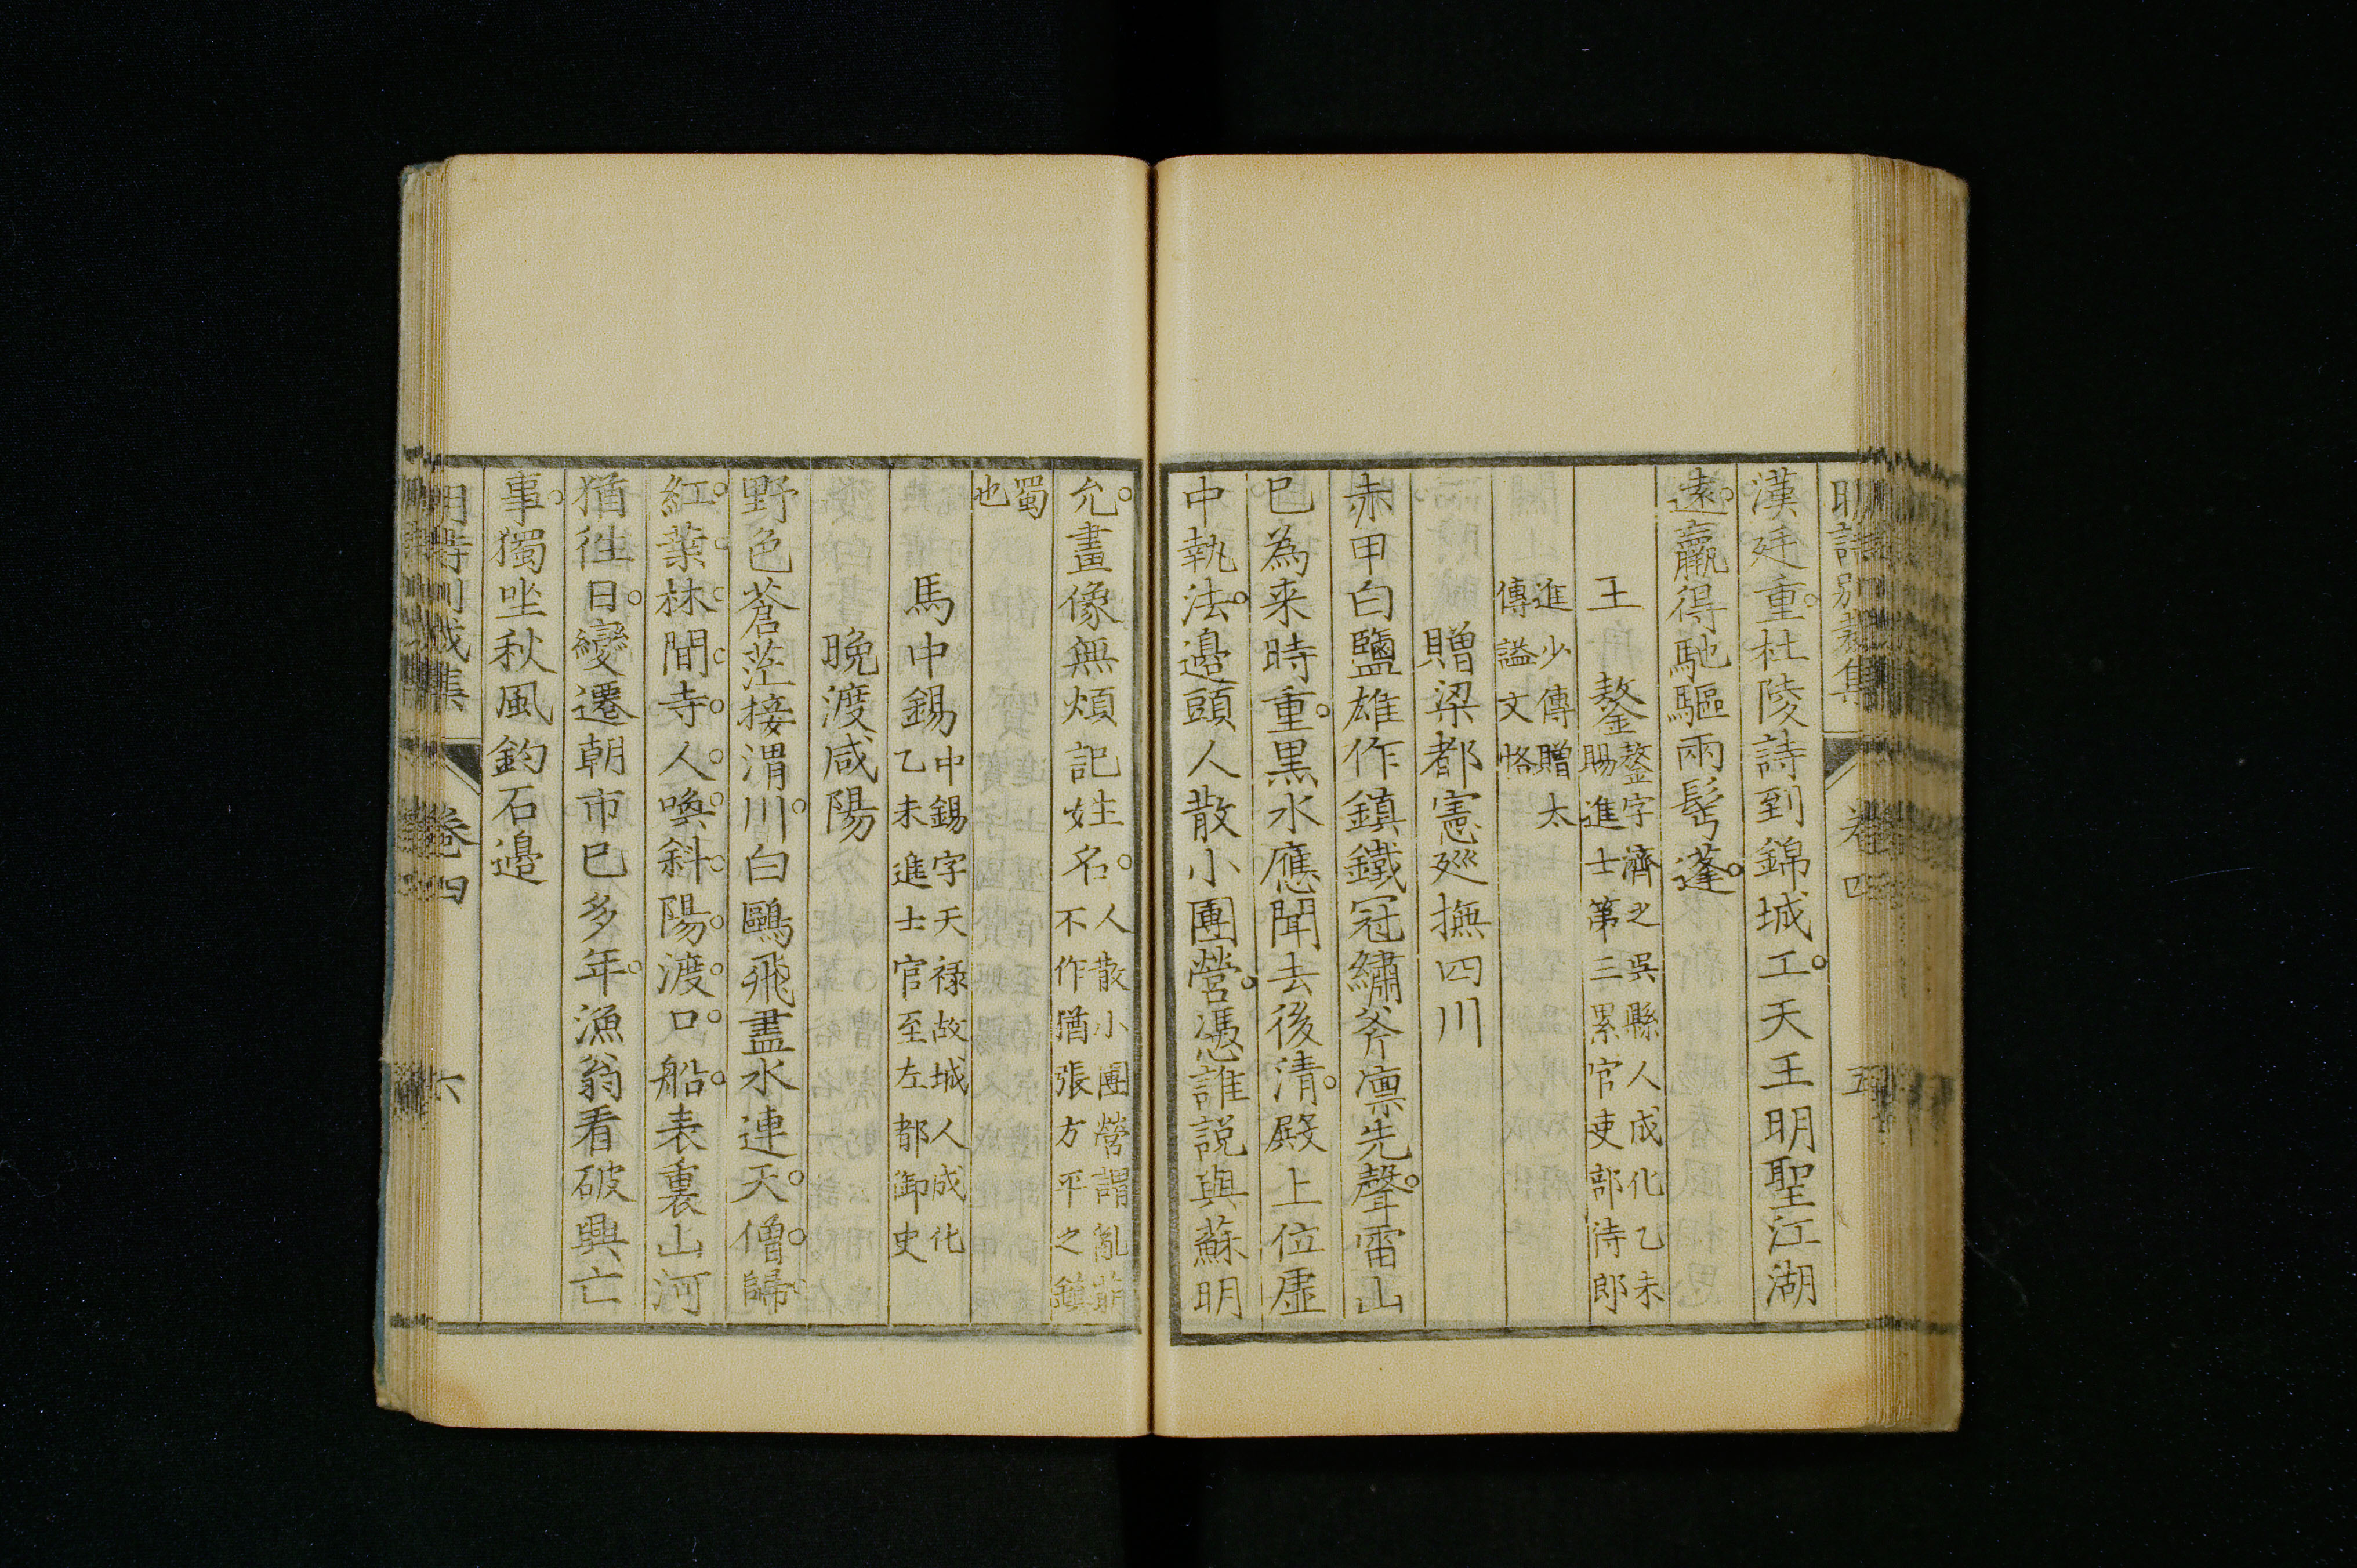 明詩別裁集 卷四 五
漢廷重杜陵詩到錦城工天王明聖江湖
遠贏得馳驅兩鬂蓬
王 鏊 鏊字濟之吳縣人成化乙未
賜進士第三累官吏部侍郎
進少傅贈太
傅謚文恪
贈梁都憲廵撫四川
赤甲白鹽雄作鎮鐵冠繡斧凛先聲雷山
巳為来時重黒水應聞去後清殿上位虛
中執法邉頭人散小團營憑誰説與蘇明
允畫像無煩記姓名 人散小團營謂亂萌
不作猶張方平之鎮
蜀
也
馬中錫 中錫字天禄故城人成化
乙未進士官至左都御史
晚渡咸陽
野色蒼茫接渭川白鷗飛盡水連天僧歸
紅葉林間寺人喚斜陽渡口船表裏山河
猶徃日變遷朝市巳多年漁翁看破興亡
事獨坐秋風釣石邉
明詩別裁集 卷四 六